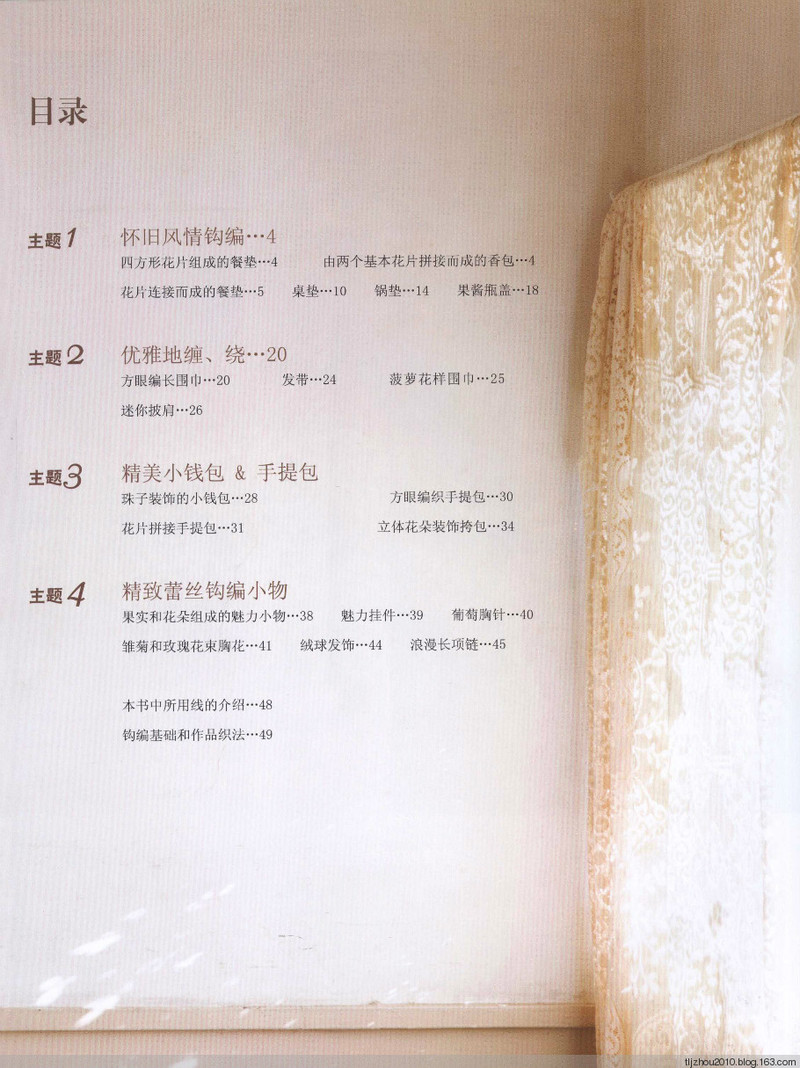 目录
主题1 怀旧风情钩编…4
四方形花片组成的餐垫…4 由两个基本花片拼接而成的香包…4
花片连接而成的餐垫…5 桌垫…10 锅垫…14 果酱瓶盖…18
主题2 优雅地缠、绕…20
方眼编长围巾…20 发带…24 菠萝花样围巾…25
迷你披肩…26
主题3 精美小钱包 & 手提包
珠子装饰的小钱包…28 方眼编织手提包…30
花片拼接手提包…31 立体花朵装饰挎包…34
主题4 精致蕾丝钩编小物
果实和花朵组成的魅力小物…38 魅力挂件…39 葡萄胸针…40
雏菊和玫瑰花束胸花…41 绒球发饰…44 浪漫长项链…45
本书中所用线的介绍…48
钩编基础和作品织法…49
tljzhou2010.blog.163.com